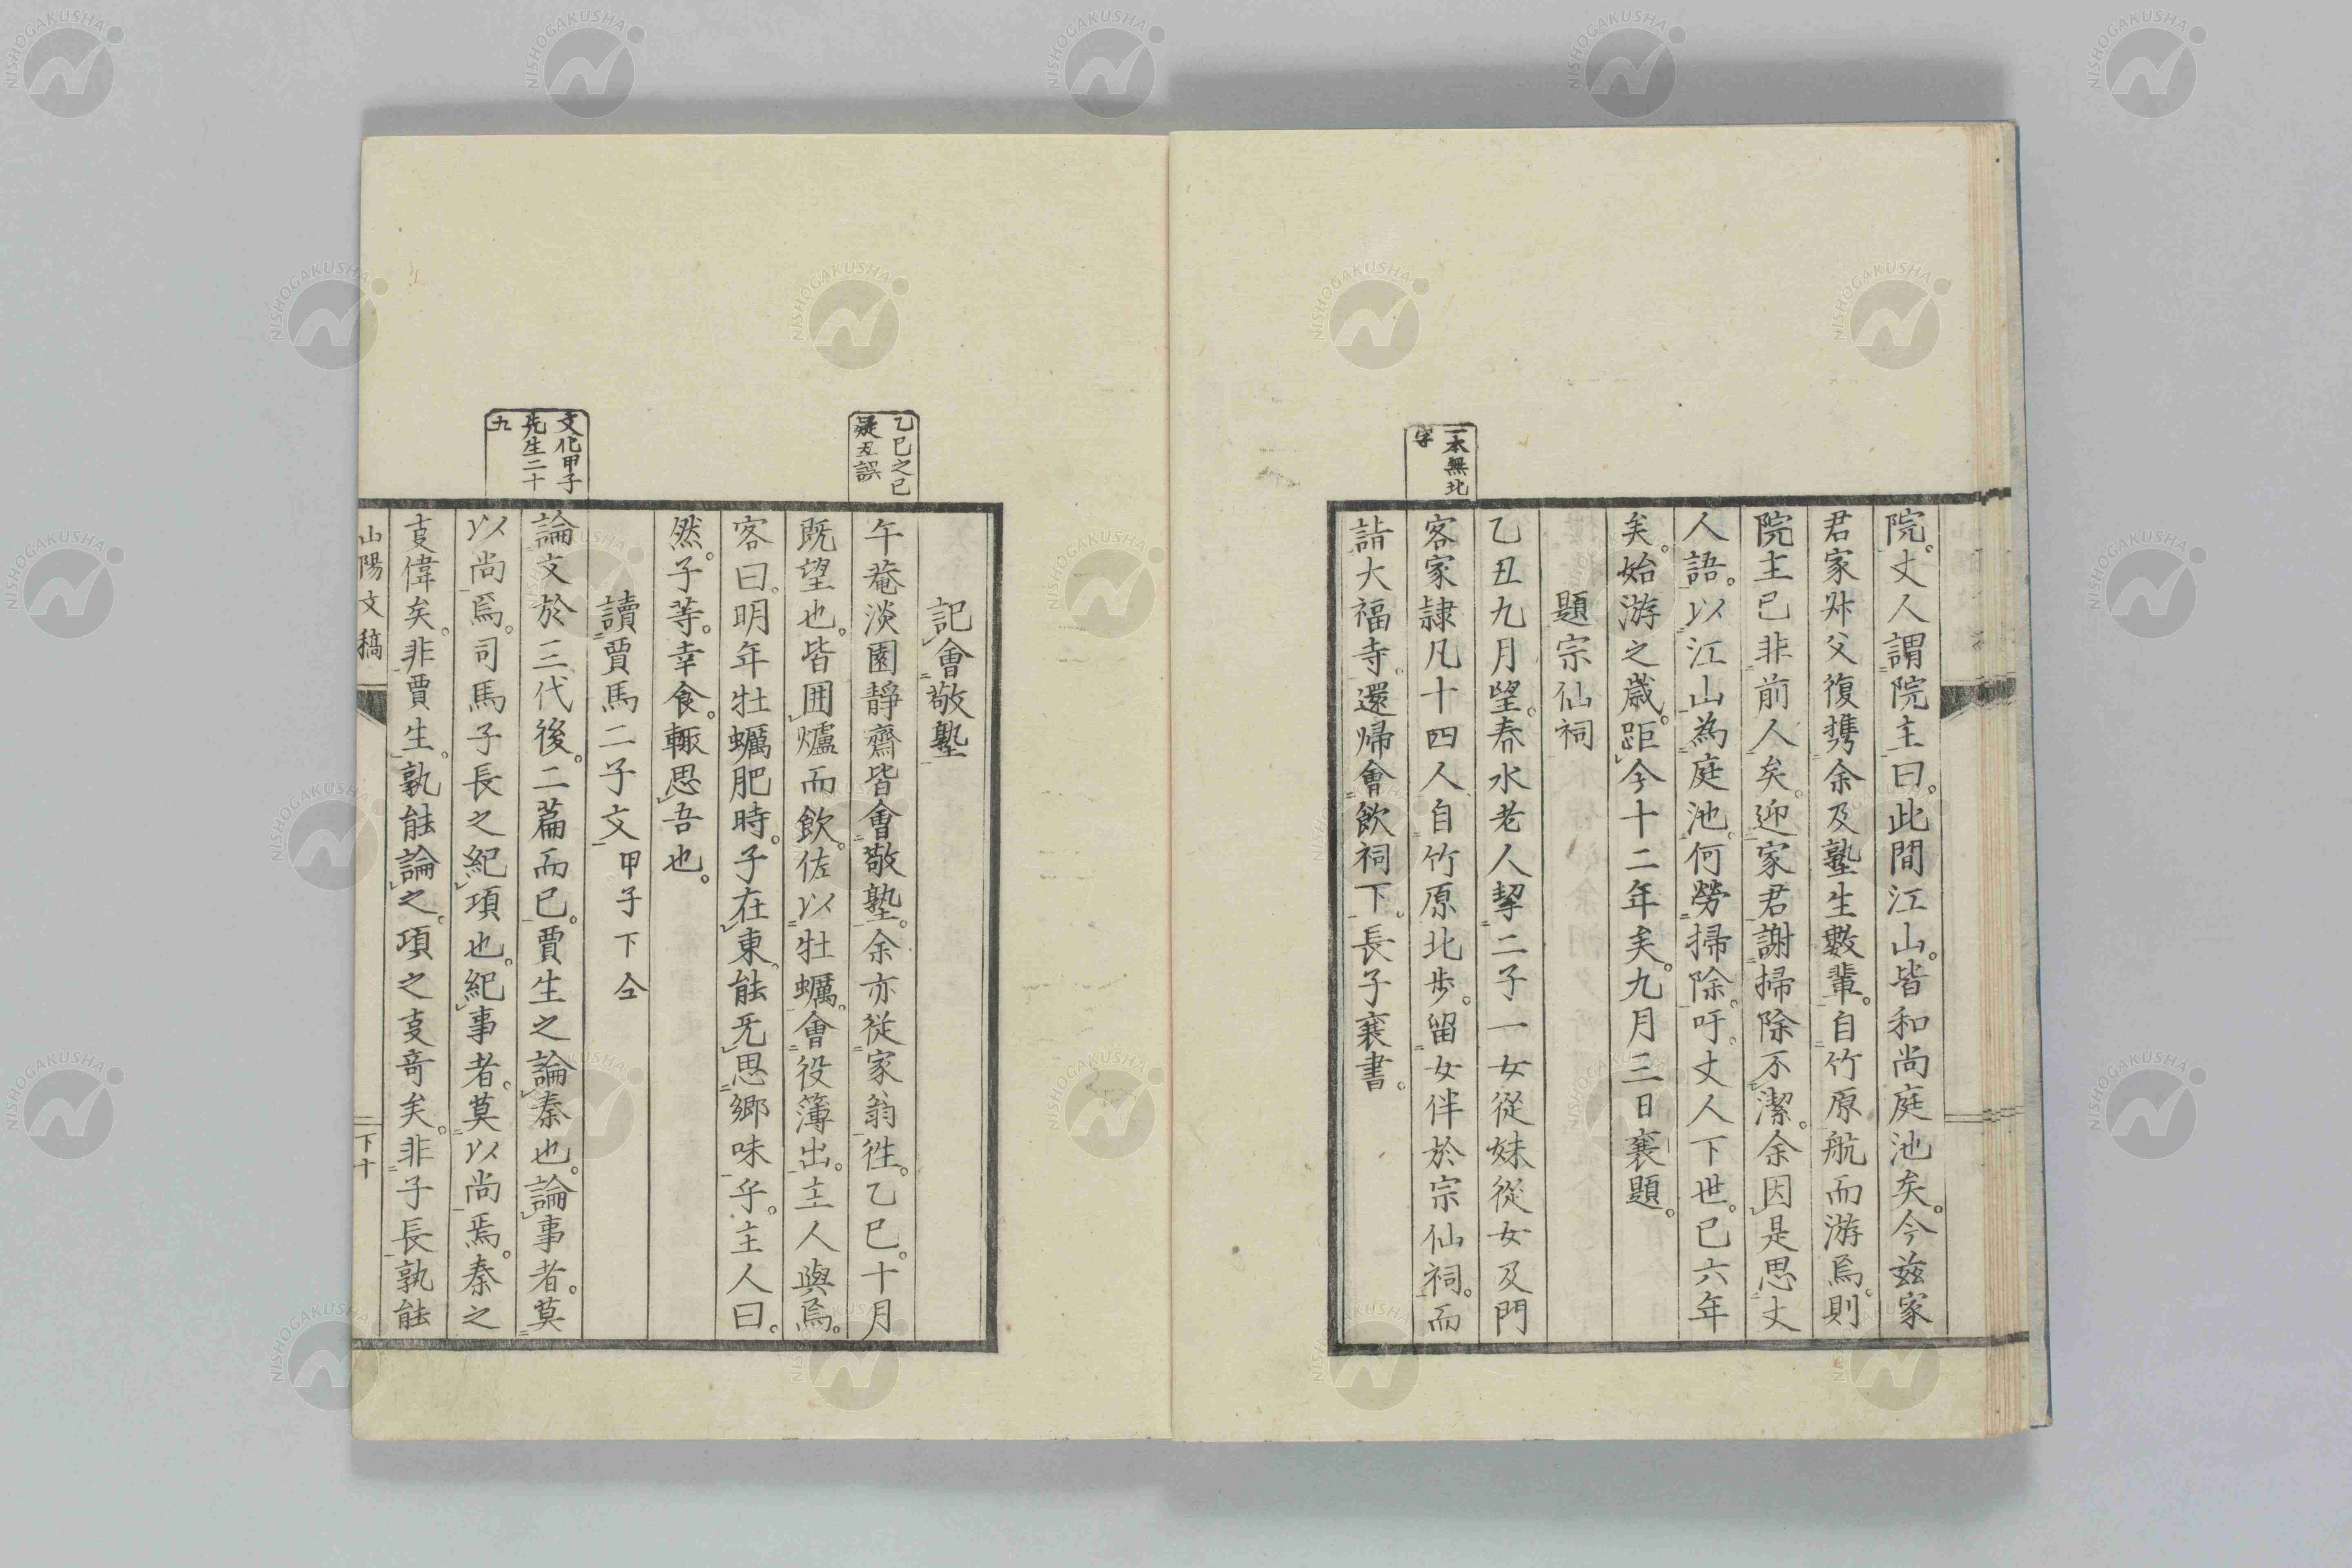 院。丈人謂院主曰。此間江山。皆和尚庭池矣。今茲家
君家舛父復携余及塾生數輩。自竹原航而游焉。則
院主已非前人矣。迎家君謝掃除不潔。余因是思丈
人語。以江山為庭池。何勞掃除。吁。丈人下世。已六年
矣。始游之歳。距今十二年矣。九月三日襄題。
題宗仙祠
乙丑九月望。春水老人挈二子一女從妹從女及門
一本無北
字
客家隷凡十四人自竹原北步。留女伴於宗仙祠。而
詣大福寺。還帰會飲祠下。長子襄書。
記會敬塾
乙巳之巳
疑丑誤
午菴淡園靜齋皆會敬塾。余亦従家翁徃。乙巳。十月
既望也。皆囲爐而飲。佐以牡蠣。會役簿出。主人與焉。
客曰。明年牡蠣肥時。子在東。能旡思鄉味乎。主人曰。
然。子等。幸食。輙思吾也。
讀賈馬二子文 甲子下仝
文化甲子
先生二十
九
論文於三代後。二篇而已。賈生之論秦也。論事者。莫
以尚焉。司馬子長之紀項也。紀事者。莫以尚焉。秦之
叓偉矣。非賈生。孰能論之。項之叓竒矣。非子長孰能
山陽文稿
下十
NISHOGAKUSHA